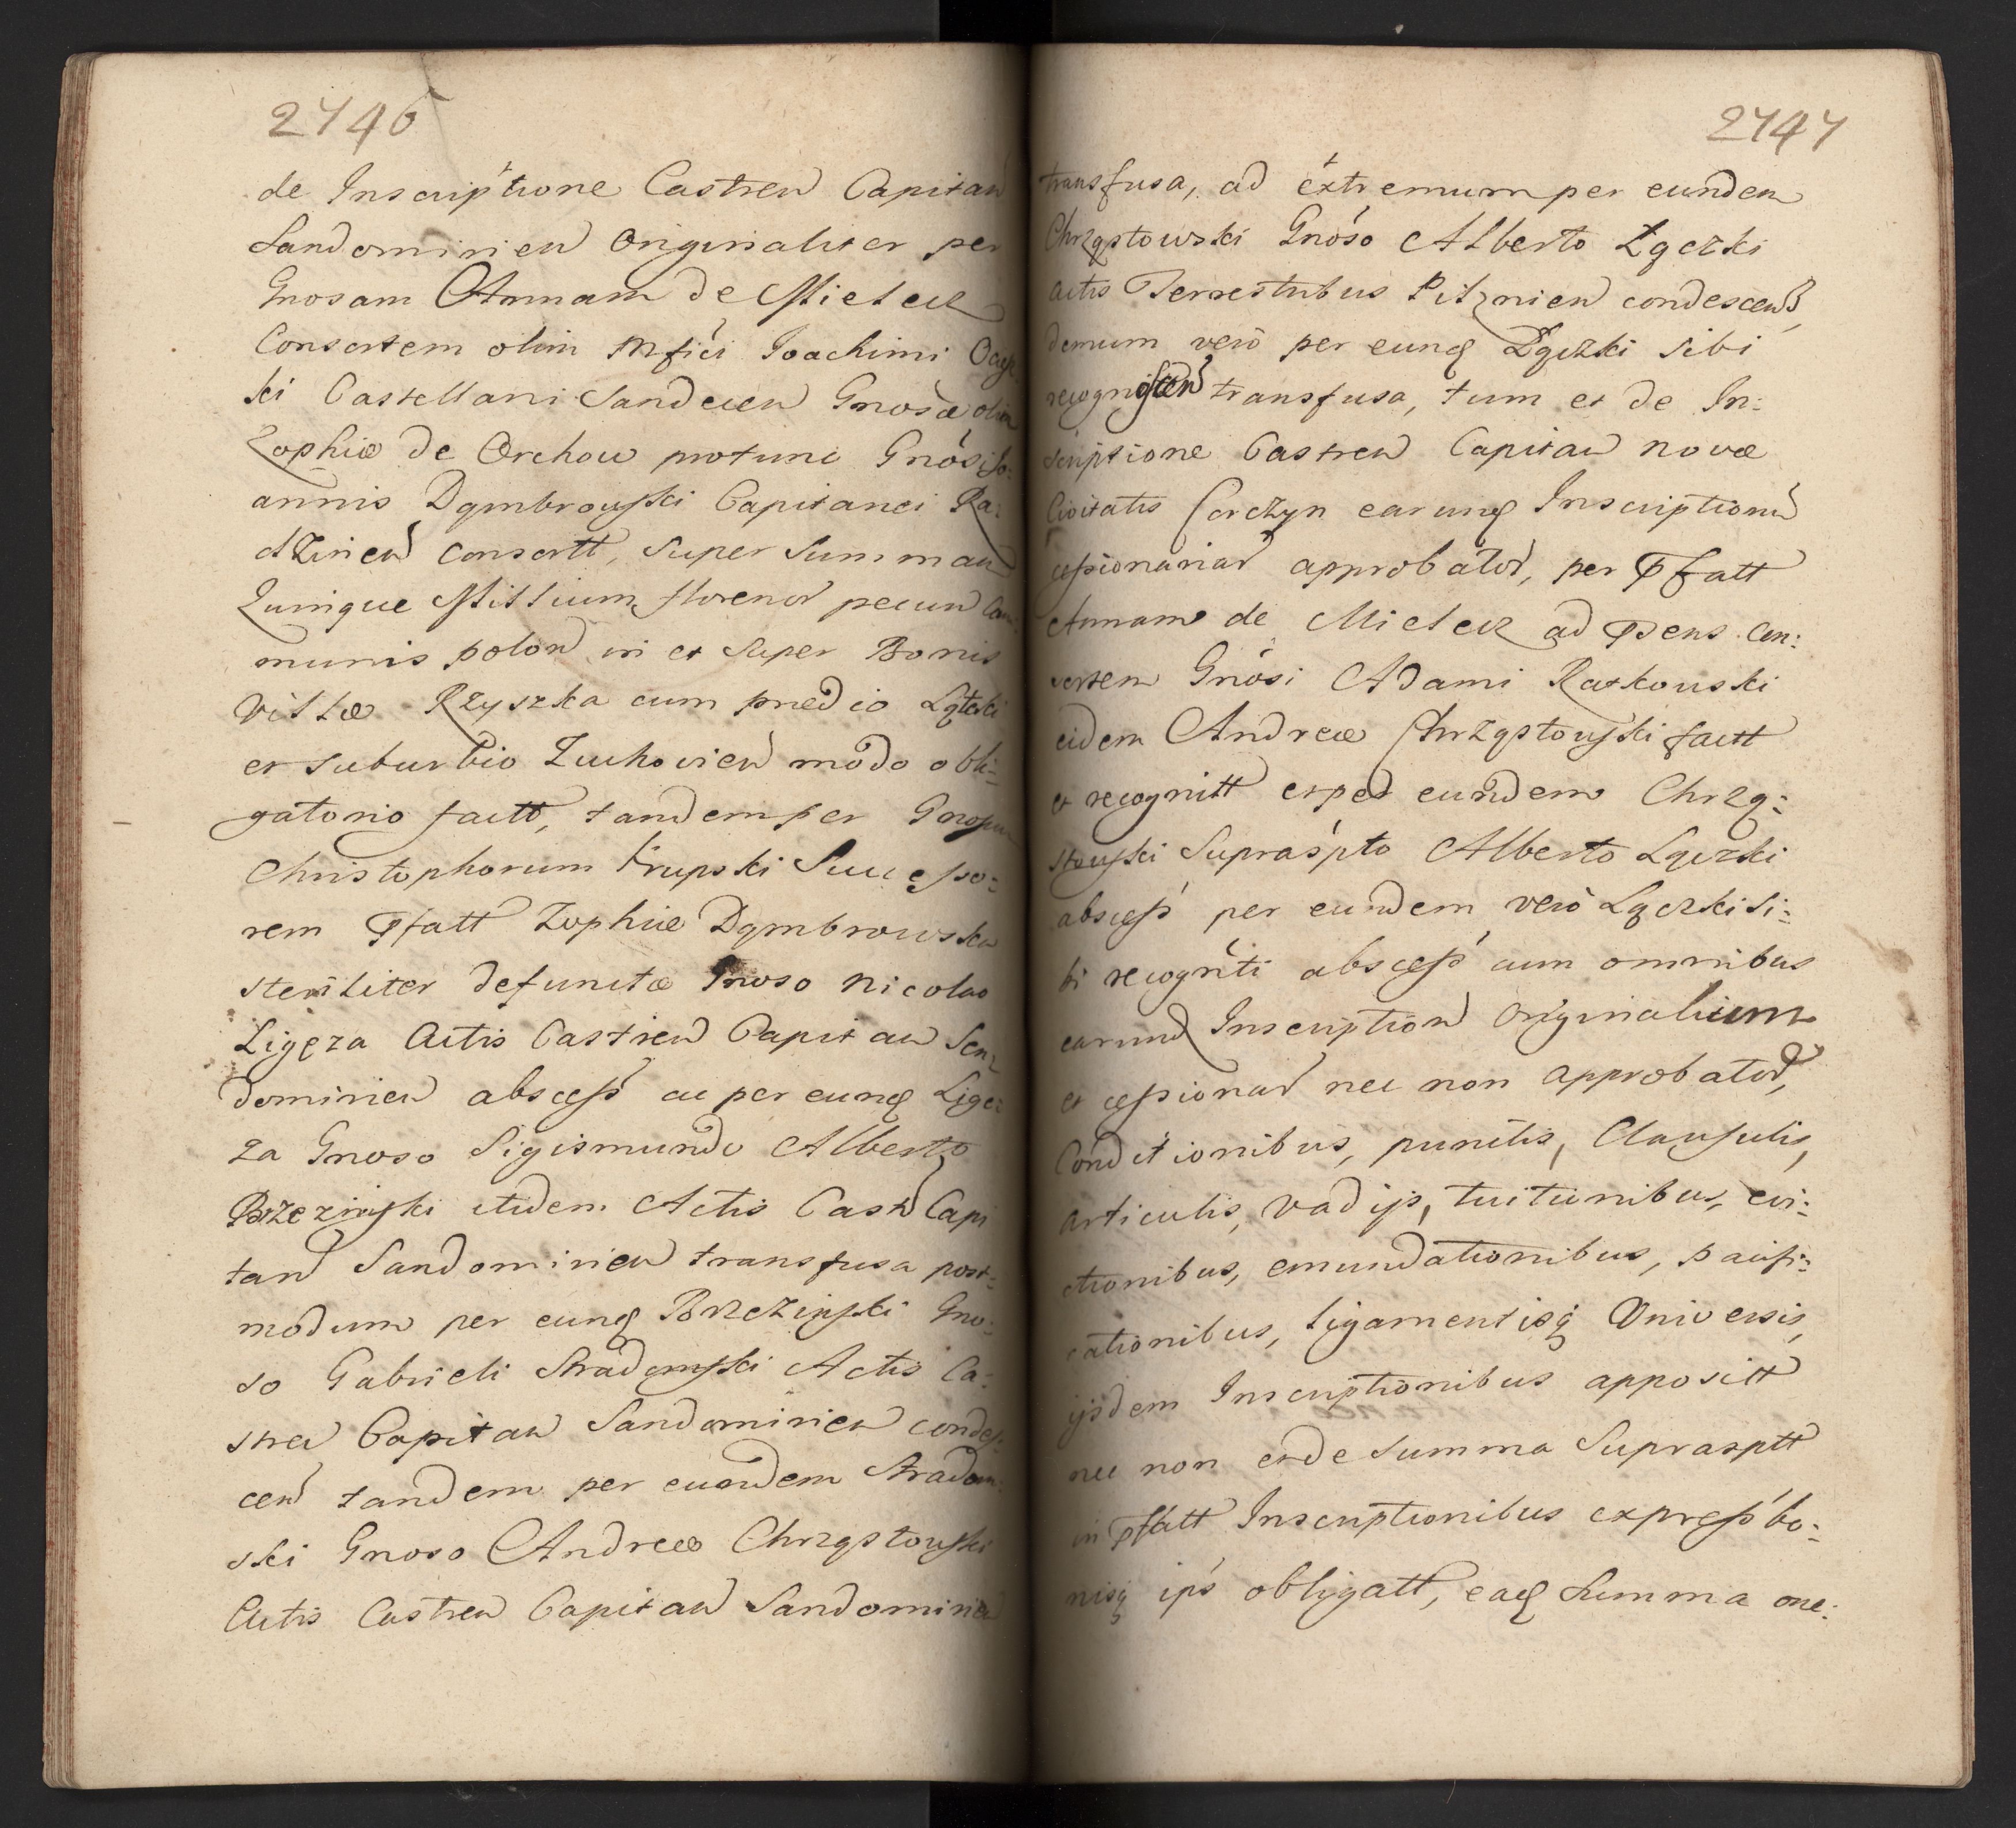 2746
de Inscriptione Castren Capitan
Sandomirien Originaliter per
Gnosam Annam de Mielecz
Consortem olim Mfici Ioachimi
ki Castellani Sandecen Gnosæ olim
Zophiæ de Orchow protunc Gnosi Jo:
annis Dąmbrowski Capitanei Ra:
dzinen consortt, super Summam
Quinque Millium florenor pecun Com
munis polon in et super Bonis
Villæ Rzyszka cum prædio
et suburbio Zuchovien modo obli:
gatorio factt, tandem per Gnosum
Christophorum Krupski Successo:
rem Pfatt Zophiæ Dąmbrowska
steriliter defunctæ Gnoso Nicolao
Ligęza Actis Castren Capitan San
domirien abscess ac per eund Ligę:
za Gnoso Sigismundo Alberto
Brzezinski itidem Actis Castr Capi
tan Sandomirien transfusa post:
modum per eund Brzezinski Gno:
so Gabrieli Stradomski Actis Ca:
stren Capitan Sandomirien condes:
cen tandem per eundem Stradom:
ski Gnoso Andreæ Chrząstowski
Actis Castren Capitan Sandomirien
2747
transfusa, ad extremum per eundem
Chrząstowski Gnoso Alberto Łączki
actis Terrestribus Pilznien condescens,
demum vero per eund Łączki sibi
recognoscen transfusa, tum et de In:
scriptione Castren Capitan novæ
Civitatis Corczyn earund Inscriptionu
cessionariar approbator, per Pfatt
Annam de Mielecz ad Psens Con:
sortem Gnosi Adami Ratkouski
eidem Andreæ Chrząstowski factt
et recognitt et per eundem Chrzą:
stowski Suprascpto Alberto Łączki
abscess per eundem vero Łączki si:
bi recogniti abscess cum omnibus
earund Inscription Originalium
et cessionar nec non approbator,
Conditionibus, punctis, Clausulis,
articulis, vadijs, tuitionibus, evi:
ctionibus, emundationibus, pacifi:
cationibus, ligamentisq Universis,
ijsdem Inscriptionibus apposiitt
nec non et de Summa Suprasptt
in Pfatt Inscriptionibus express bo:
nisq ips obligatt, ead Summa one: